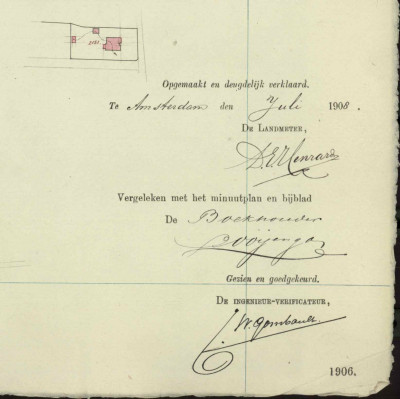 2181
Opgemaakt en deugdelijk verklaard.
Te Amsterdam den Juli 1908.
De Landmeter,
Vergeleken met het minuutplan en bijblad
De Boekhouder
Looijenga
Gezien en goedgekeurd.
De Ingenieur-Verificateur,
W. Gombault.
1906.